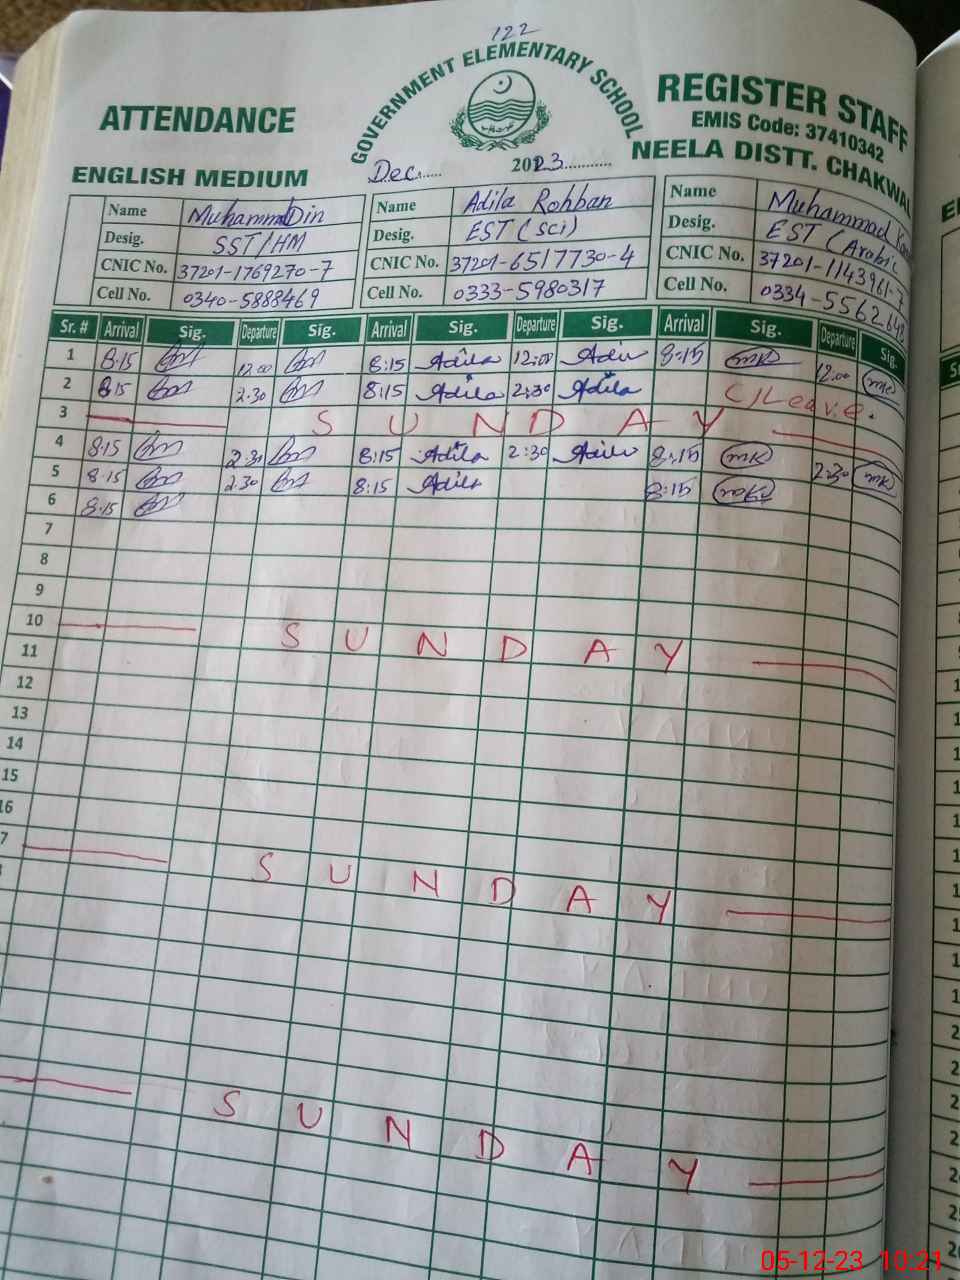 122
GOVERNMENT ELEMENTARY SCHOOL
ATTENDANCE
REGISTER STAFF
EMIS Code: 37410342
ENGLISH MEDIUM
Dec...... 2023............
NEELA DISTT. CHAKWAL
Name Muhammad Din Name Adila Rohban Name Muhammad
Desig. SST/HM Desig. EST (Sci) Desig. EST (Arabic
CNIC No. 37201-1769270-7 CNIC No. 37201-6517730-4 CNIC No. 37201-1143961-7
Cell No. 0340-5888469 Cell No. 0333-5980317 Cell No. 0334-5562648
Sr. # Arrival Sig. Departure Sig. Arrival Sig. Departure Sig. Arrival Sig. Departure Sig.
1 8:15 12:00 8:15 Adila 12:00 Adila 8:15 MK 12:00 MK
2 8:15 2:30 8:15 Adila 2:30 Adila C/Leave.
3 SUNDAY
4 8:15 2:30 8:15 Adila 2:30 Adila 8:15 MK 2:30 MK
5 8:15 2:30 8:15 Adila 8:15 MK
6 8:15
7
8
9
10 SUNDAY
11
12
13
14
15
16
7 SUNDAY
SUNDAY
05-12-23 10:21